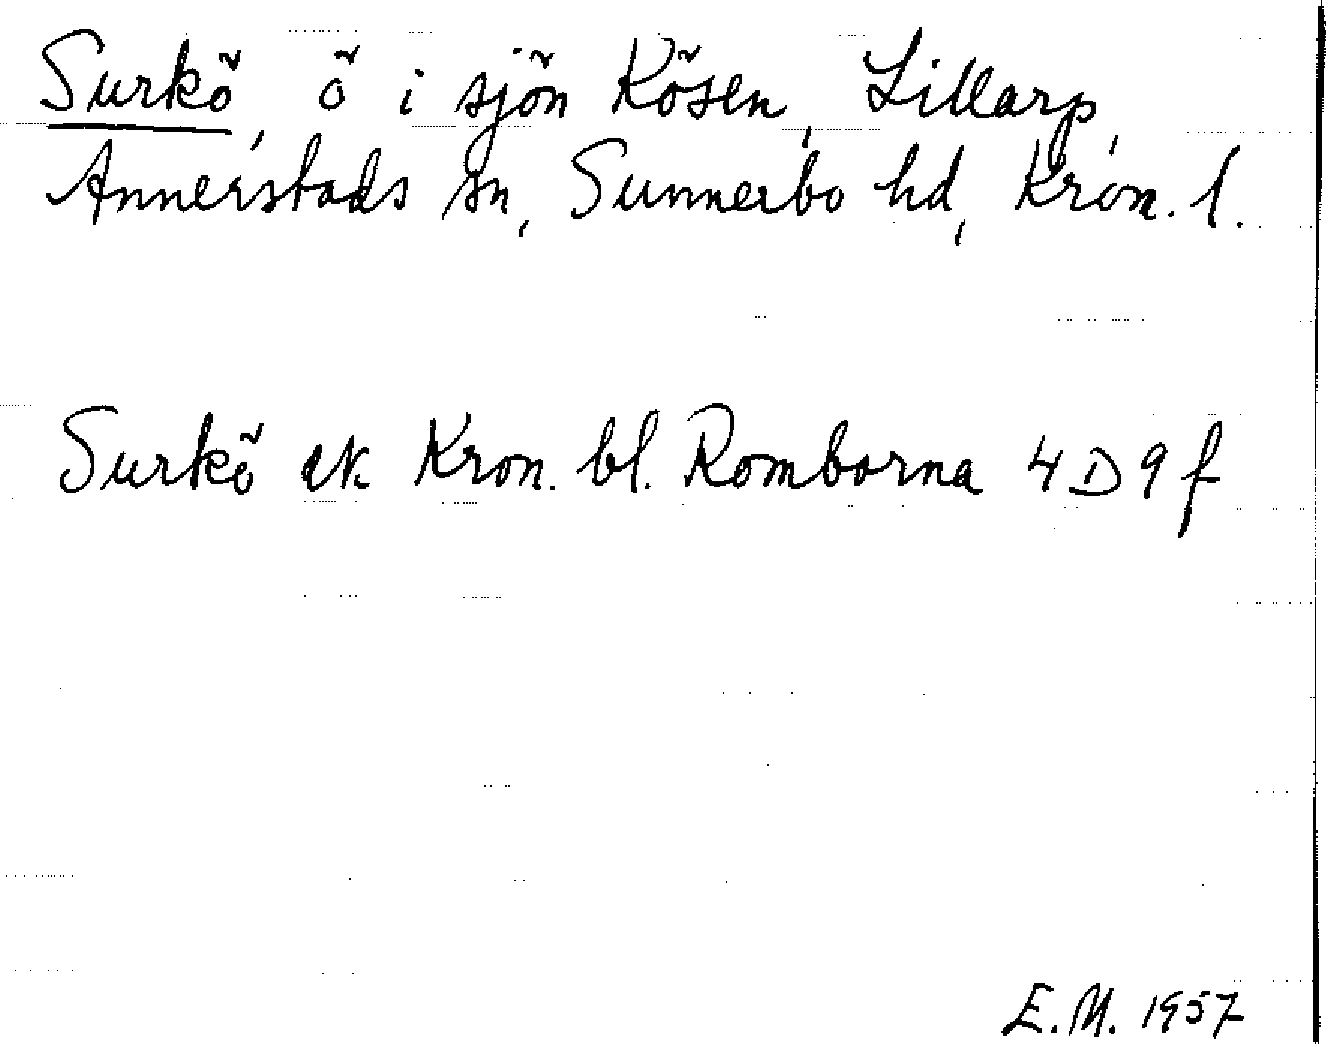 Surkö, ö i sjön Kösen, Lillarp,
Annerstads sn, Sunnerbo hd, Kron. l.
Surkö ek Kron. bl. Romborna 4D9f
E.M. 1957